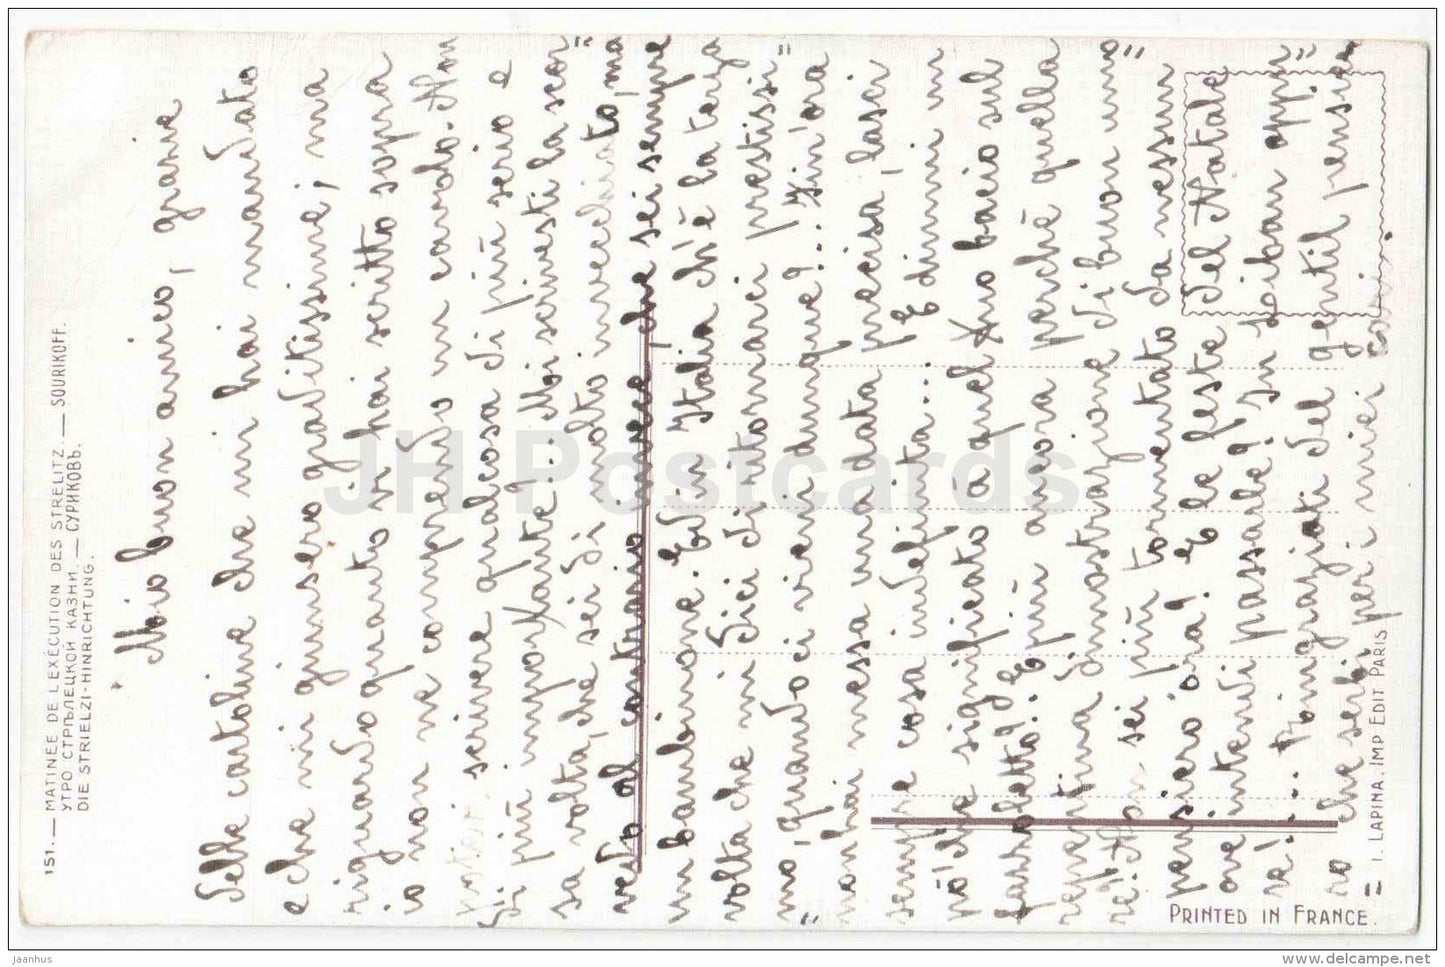 151. — MATINÉE DE L'EXÉCUTION DES STRELITZ. — SOURIKOFF.
УТРО СТРѢЛЕЦКОЙ КАЗНИ. — СУРИКОВЪ.
DIE STRIELZI-HINRICHTUNG.
Mio buon amico, grazie
delle cartoline che mi hai mandato
e che mi giunsero graditissime; ma
riguardo quanto vi hai scritto sopra
io non ne comprendo un cavolo. Non
potevi scrivere qualcosa di più serio e
di più importante!... Moi scrivesti la scor=
sa volta, che sei di molto invecchiato, ma
vedo al contrario invece, che sei sempre
un bambinone. Ed in Italia ch'è la terza
volta che mi dici di ritornarci prestissi=
"mo, quando ci vieni dunque?... Fin'ora
non hai messa una data precisa, lasci
sempre cosa indefinita... E dimmi un
pò che significato à quel tuo bacio sul
fazzoletto?.. E più ancora perchè quella
repentina dimostrazione di buon umo=
re? Non sei più tormentato da nessun
pensiero ora? E le feste del Natale
ove intendi passarle? In Liban oppu=
re!... Ringraziati del gentil pensie
=ro che serbi per i miei cari.
PRINTED IN FRANCE.
I. LAPINA. IMP EDIT PARIS
JH Postcards
jaanhus
www.delcampe.net